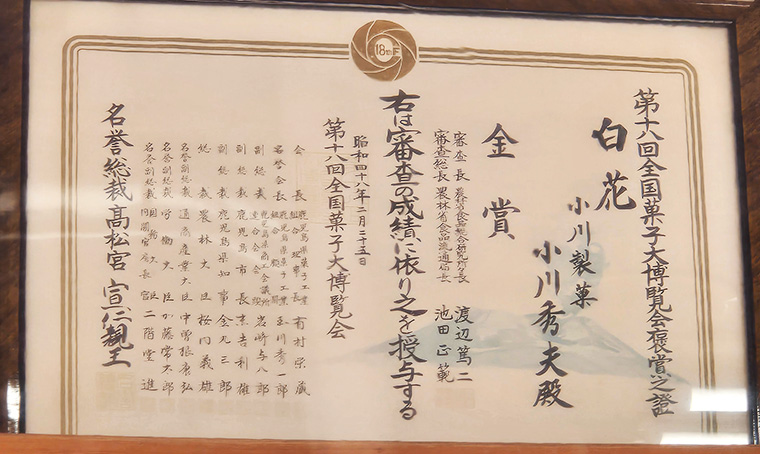 18th F
第十八回全国菓子大博覧会褒賞之證
白花
小川製菓
小川秀夫殿
金賞
審査長 農林省食品総合研究所長 渡辺篤二
審査総長 農林省食品流通局長 池田正範
右は審査の成績に依り之を授与する
昭和四十八年二月二十五日
第十八回全国菓子大博覧会
会長 鹿児島県菓子工業組合理事長 有村栄蔵
名誉会長 鹿児島県菓子工業組合 玉川秀一郎
副総裁 鹿児島県商工会議所連合会会頭 岩崎与八郎
副総裁 鹿児島市長 末吉利雄
副総裁 鹿児島県知事 金丸三郎
総裁 農林大臣 桜内義雄
名誉副総裁 通商産業大臣 中曽根康弘
名誉副総裁 労働大臣 加藤常太郎
名誉副総裁 内閣官房長官 二階堂進
名誉総裁 高松宮 宣仁親王